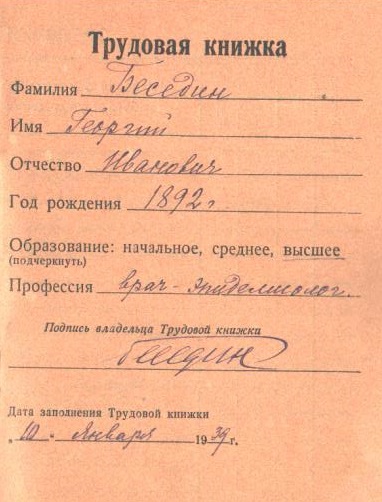 Трудовая книжка
Фамилия Беседин
Имя Георгий
Отчество Иванович
Год рождения 1892 г
Образование: начальное, среднее, высшее
(подчеркнуть)
Профессия врач-эпидемиолог.
Подпись владельца Трудовой книжки
Беседин
Дата заполнения Трудовой книжки
„10" января 1939 г.